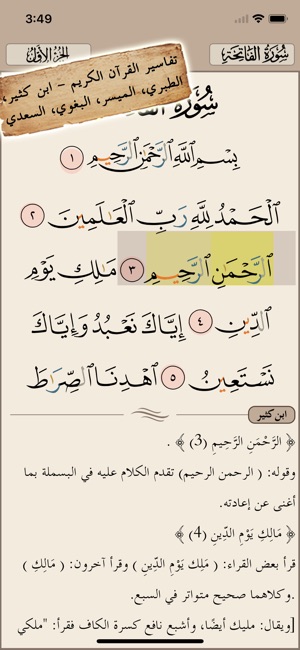 3:49
سُورَةُ الفَاتِحَةِ
الجُزْءُ الأَوَّلُ
تفاسير القرآن الكريم - ابن كثير،
الطبري، الميسر، البغوي، السعدي
سُورَةُ
بِسْمِ ٱللَّهِ ٱلرَّحْمَٰنِ ٱلرَّحِيمِ ١
ٱلْحَمْدُ لِلَّهِ رَبِّ ٱلْعَٰلَمِينَ ٢
ٱلرَّحْمَٰنِ ٱلرَّحِيمِ ٣ مَٰلِكِ يَوْمِ
ٱلدِّينِ ٤ إِيَّاكَ نَعْبُدُ وَإِيَّاكَ
نَسْتَعِينُ ٥ ٱهْدِنَا ٱلصِّرَٰطَ
ابن كثير
﴿ الرَّحْمَٰنِ الرَّحِيمِ (3) ﴾ .
وقوله: ( الرحمن الرحيم) تقدم الكلام عليه في البسملة بما
أغنى عن إعادته.
﴿ مَالِكِ يَوْمِ الدِّينِ (4) ﴾
قرأ بعض القراء: ( مَلِك يَوْمِ الدِّينِ ) وقرأ آخرون: ( مَالِكِ )
.وكلاهما صحيح متواتر في السبع
[ويقال: مليك أيضًا، وأشبع نافع كسرة الكاف فقرأ: "ملكي